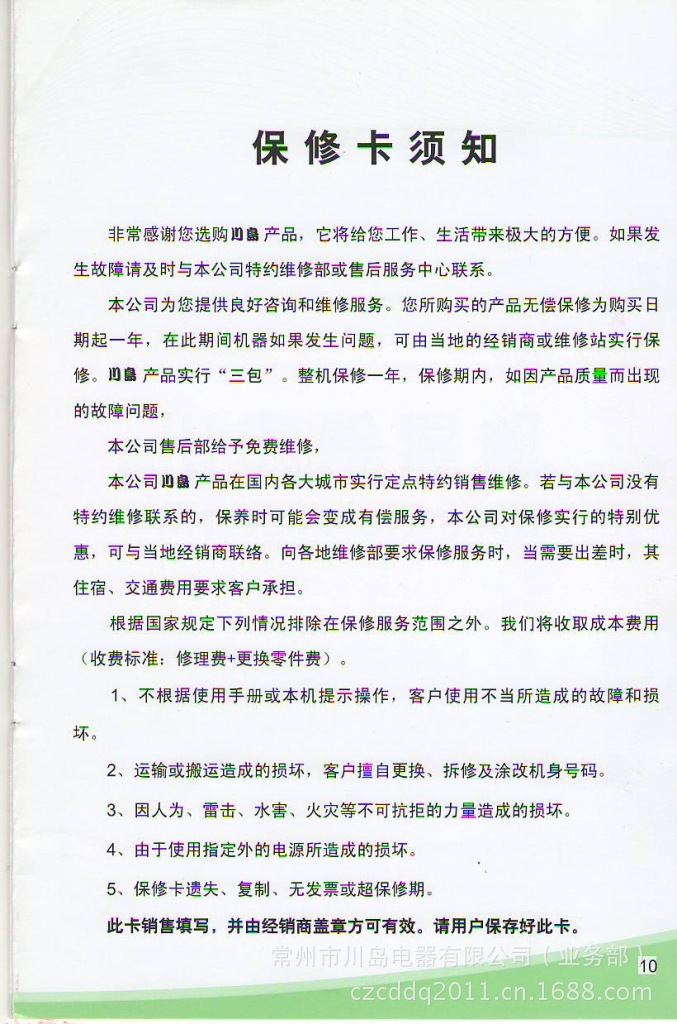 保修卡须知
非常感谢您选购川岛产品，它将给您工作、生活带来极大的方便。如果发
生故障请及时与本公司特约维修部或售后服务中心联系。
本公司为您提供良好咨询和维修服务。您所购买的产品无偿保修为购买日
期起一年，在此期间机器如果发生问题，可由当地的经销商或维修站实行保
修。川岛产品实行“三包”。整机保修一年，保修期内，如因产品质量而出现
的故障问题，
本公司售后部给予免费维修，
本公司川岛产品在国内各大城市实行定点特约销售维修。若与本公司没有
特约维修联系的，保养时可能会变成有偿服务，本公司对保修实行的特别优
惠，可与当地经销商联络。向各地维修部要求保修服务时，当需要出差时，其
住宿、交通费用要求客户承担。
根据国家规定下列情况排除在保修服务范围之外。我们将收取成本费用
（收费标准：修理费+更换零件费）。
1、不根据使用手册或本机提示操作，客户使用不当所造成的故障和损
坏。
2、运输或搬运造成的损坏，客户擅自更换、拆修及涂改机身号码。
3、因人为、雷击、水害、火灾等不可抗拒的力量造成的损坏。
4、由于使用指定外的电源所造成的损坏。
5、保修卡遗失、复制、无发票或超保修期。
此卡销售填写，并由经销商盖章方可有效。请用户保存好此卡。
常州市川岛电器有限公司（业务部）
10
czcddq2011.cn.1688.com